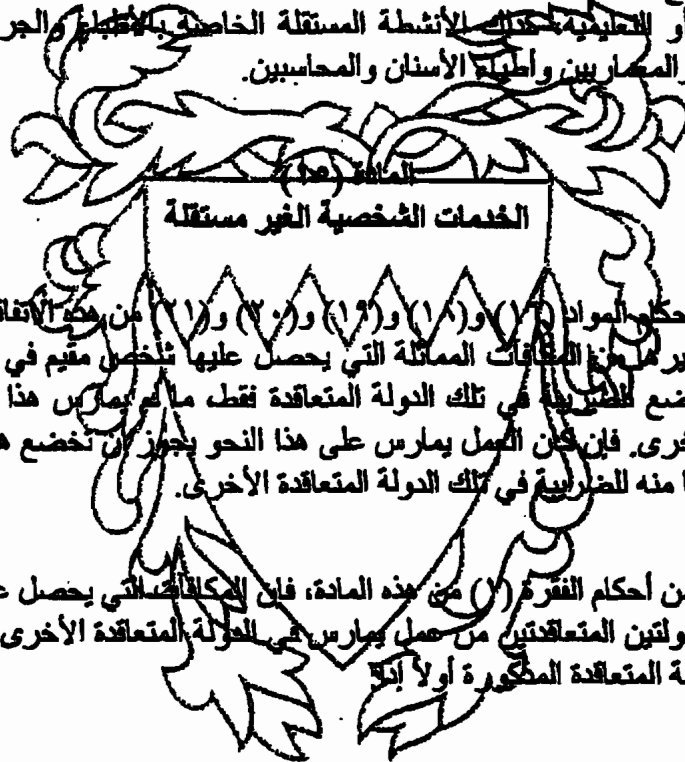 أو التعليمية، كذلك الأنشطة المستقلة الخاصة بالأطباء والجر
والمعماريين وأطباء الأسنان والمحاسبين.
المادة (١٥)
الخدمات الشخصية الغير مستقلة
حكام المواد (١٦) و(١٨) و(١٩) و(٢٠) و(٢١) من هذه الاتفاق
يرها من المكافآت المماثلة التي يحصل عليها شخص مقيم في
ضع للضريبة في تلك الدولة المتعاقدة فقط، ما لم يمارس هذا
خرى. فإن كان العمل يمارس على هذا النحو يجوز أن تخضع ه
ا منه للضريبة في تلك الدولة المتعاقدة الأخرى.
من أحكام الفقرة (١) من هذه المادة، فإن المكافآت التي يحصل ع
ولتين المتعاقدتين من عمل يمارس في الدولة المتعاقدة الأخرى
ة المتعاقدة المذكورة أولاً إذا: